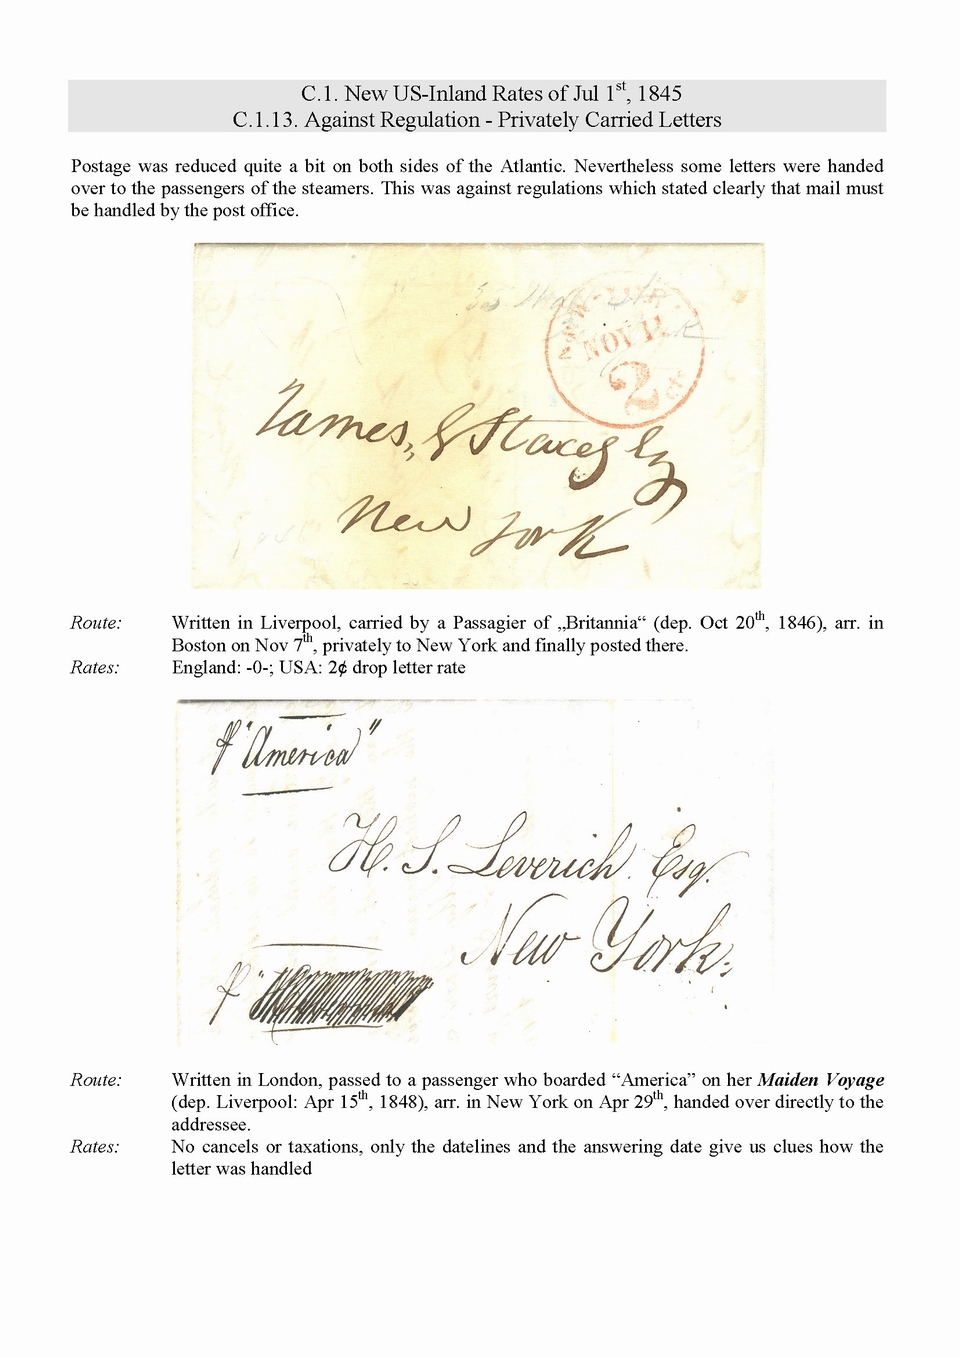 C.1. New US-Inland Rates of Jul 1st, 1845
C.1.13. Against Regulation - Privately Carried Letters
Postage was reduced quite a bit on both sides of the Atlantic. Nevertheless some letters were handed
over to the passengers of the steamers. This was against regulations which stated clearly that mail must
be handled by the post office.
NEW-YORK
NOV 11
2 cts
James, & Stacey Esq
New York
Route: Written in Liverpool, carried by a Passagier of „Britannia“ (dep. Oct 20th, 1846), arr. in
Boston on Nov 7th, privately to New York and finally posted there.
Rates: England: -0-; USA: 2¢ drop letter rate
p "America"
H. S. Leverich Esq.
New York.
p "
Route: Written in London, passed to a passenger who boarded “America” on her Maiden Voyage
(dep. Liverpool: Apr 15th, 1848), arr. in New York on Apr 29th, handed over directly to the
addressee.
Rates: No cancels or taxations, only the datelines and the answering date give us clues how the
letter was handled